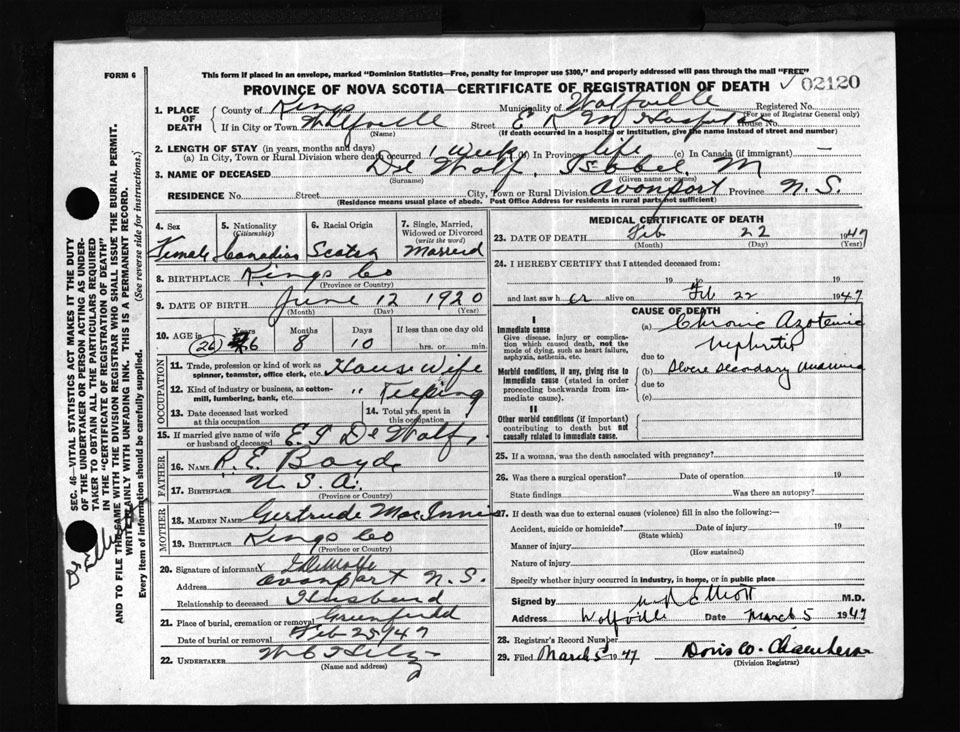 FORM 6
This form if placed in an envelope, marked "Dominion Statistics—Free, penalty for improper use $300," and properly addressed will pass through the mail "FREE"
PROVINCE OF NOVA SCOTIA—CERTIFICATE OF REGISTRATION OF DEATH ✓ 02120
1. PLACE OF DEATH County of Kings Municipality of Wolfville Registered No.
(For use of Registrar General only)
If in City or Town Wolfville Street E K M Hospital House No.
(Name) (If death occurred in a hospital or institution, give the name instead of street and number)
2. LENGTH OF STAY (in years, months and days)
(a) In City, Town or Rural Division where death occurred 1 week (b) In Province life (c) In Canada (if immigrant) —
3. NAME OF DECEASED De Wolf, Isabel, M
(Surname) (Given name or names)
RESIDENCE No. Street City, Town or Rural Division Avonport Province N. S.
(Residence means usual place of abode. Post Office Address for residents in rural parts not sufficient)
4. Sex 5. Nationality (Citizenship) 6. Racial Origin 7. Single, Married, Widowed or Divorced (write the word)
Female Canadian Scotch Married
8. BIRTHPLACE Kings Co
(Province or Country)
9. DATE OF BIRTH June 12 1920
(Month) (Day) (Year)
10. AGE in Years Months Days If less than one day old
(26) 26 8 10 hrs. or min.
OCCUPATION
11. Trade, profession or kind of work as spinner, teamster, office clerk, etc. House Wife
12. Kind of industry or business, as cotton-mill, lumbering, bank, etc. " Keeping
13. Date deceased last worked at this occupation 14. Total yrs. spent in this occupation
15. If married give name of wife or husband of deceased E. I De Wolf,
FATHER
16. NAME R. E. Boyd
17. BIRTHPLACE U. S. A.
(Province or Country)
MOTHER
18. MAIDEN NAME Gertrude MacInnis
19. BIRTHPLACE Kings Co
(Province or Country)
20. Signature of informant DeWolfe
Address Avonport N. S.
Relationship to deceased Husband
21. Place of burial, cremation or removal Greenfield
Date of burial or removal Feb 25/47
22. UNDERTAKER
(Name and address)
MEDICAL CERTIFICATE OF DEATH
23. DATE OF DEATH Feb 22 1947
(Month) (Day) (Year)
24. I HEREBY CERTIFY that I attended deceased from:
19 to 19
and last saw her alive on Feb 22 1947
CAUSE OF DEATH
I
Immediate cause (a) Chronic Azotemic
Give disease, injury or complication which caused death, not the mode of dying, such as heart failure, asphyxia, asthenia, etc. Nephritis
due to
Morbid conditions, if any, giving rise to immediate cause (stated in order proceeding backwards from immediate cause). (b) Severe secondary anaemia
due to
(c)
II
Other morbid conditions (if important) contributing to death but not causally related to immediate cause.
25. If a woman, was the death associated with pregnancy?
26. Was there a surgical operation? Date of operation 19
State findings Was there an autopsy?
27. If death was due to external causes (violence) fill in also the following:—
Accident, suicide or homicide? Date of injury 19
(State which)
Manner of injury
(How sustained)
Nature of injury
Specify whether injury occurred in industry, in home, or in public place
Signed by Elliott M.D.
Address Wolfville Date March 5 1947
28. Registrar's Record Number
29. Filed March 5 1947 Doris W.
(Division Registrar)
SEC. 46—VITAL STATISTICS ACT MAKES IT THE DUTY
OF THE UNDERTAKER OR PERSON ACTING AS UNDERTAKER
TO OBTAIN ALL THE PARTICULARS REQUIRED
IN THE "CERTIFICATE OF REGISTRATION OF DEATH"
AND TO FILE THE SAME WITH THE DIVISION REGISTRAR WHO SHALL ISSUE THE BURIAL PERMIT.
WRITE PLAINLY WITH UNFADING INK. THIS IS A PERMANENT RECORD.
Every item of information should be carefully supplied. (See reverse side for instructions.)